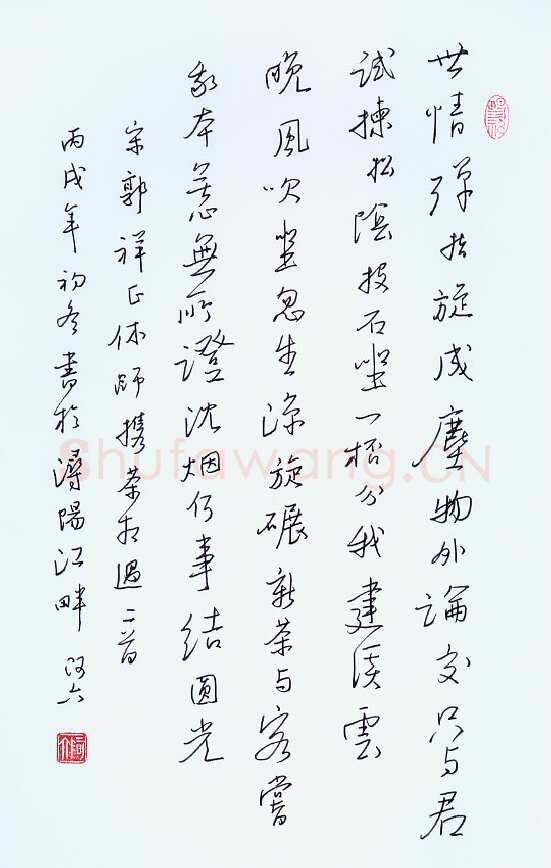 世情弹指旋成塵物外論交只与君
试揀松陰投石坐一桮分我建溪雲
晚風吹坐忽生涼旋碾新茶与客嘗
我本無心無所證沈烟何事结圆光
宋郭祥正休師携茶相過二首
丙戌年初冬書於潯陽江畔 阿六
Shufawang.CN